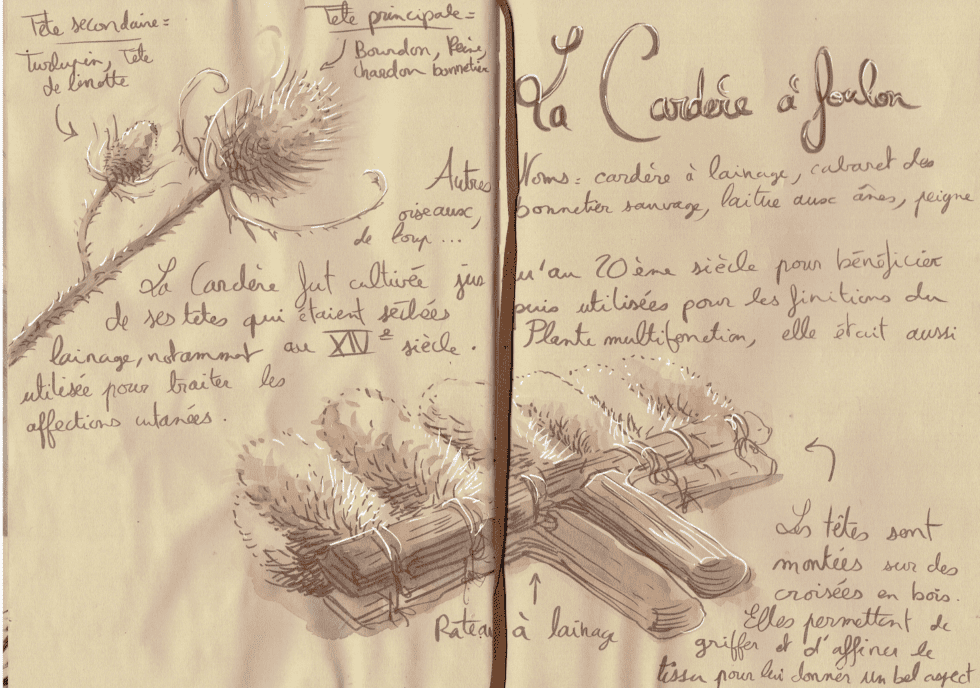 Tête secondaire =
Turlupin, Tête
de linotte
Tête principale =
Bourdon, Peine,
chardon bonnetier
La Cardère à foulon
Autres Noms = cardère à lainage, cabaret des
oiseaux, bonnetier sauvage, laitue aux ânes, peigne
de loup ...
La Cardère fut cultivée jusqu'au 20ème siècle pour bénéficier
de ses têtes qui étaient séchées puis utilisées pour les finitions du
lainage, notammat au XIVe siècle. Plante multifonction, elle était aussi
utilisée pour traiter les
affections cutanées.
Les têtes sont
montées sur des
croisées en bois.
Elles permettent de
griffer et d'affiner le
tissu pour lui donner un bel aspect
Rateau à lainage